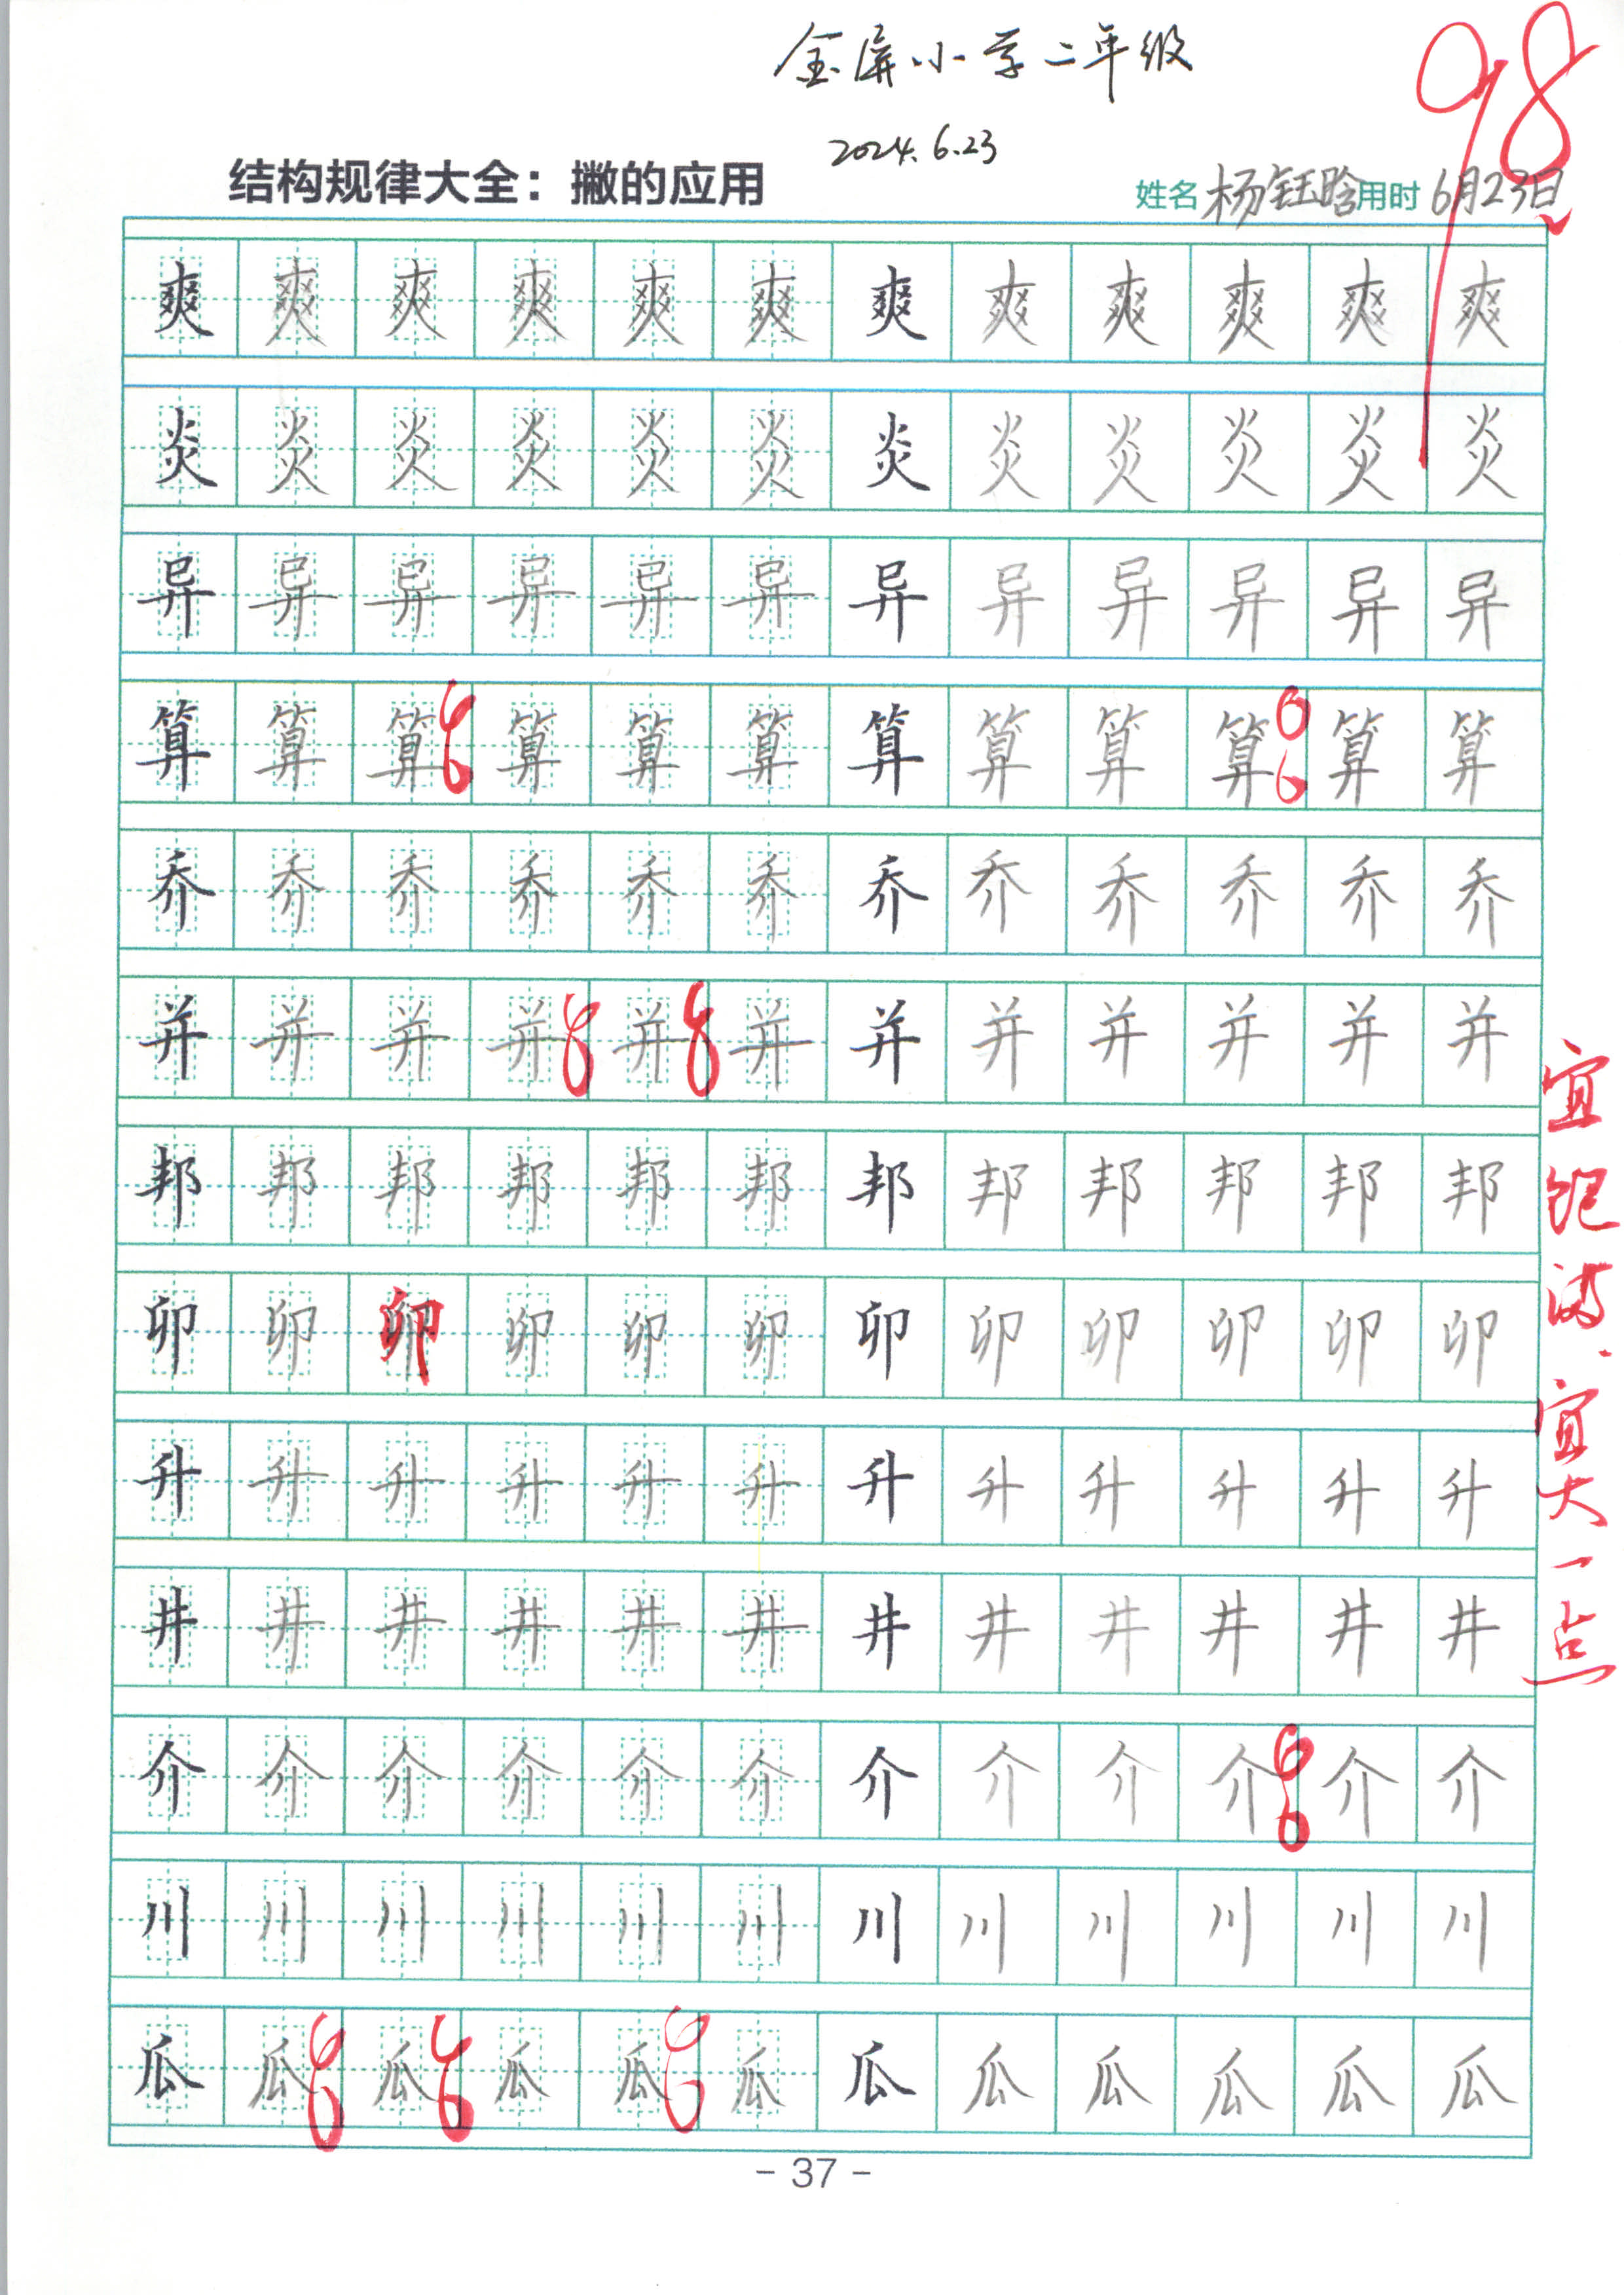 金屏小学二年级
2024.6.23
98
结构规律大全：撇的应用 姓名 杨钰晗 用时 6月23日
爽 爽 爽 爽 爽 爽 爽 爽 爽 爽 爽 爽
炎 炎 炎 炎 炎 炎 炎 炎 炎 炎 炎 炎
异 异 异 异 异 异 异 异 异 异 异 异
算 算 算 算 算 算 算 算 算 算 算 算
乔 乔 乔 乔 乔 乔 乔 乔 乔 乔 乔 乔
并 并 并 并 并 并 并 并 并 并 并 并
邦 邦 邦 邦 邦 邦 邦 邦 邦 邦 邦 邦
卯 卯 卯 卯 卯 卯 卯 卯 卯 卯 卯 卯
升 升 升 升 升 升 升 升 升 升 升 升
井 井 井 井 井 井 井 井 井 井 井 井
介 介 介 介 介 介 介 介 介 介 介 介
川 川 川 川 川 川 川 川 川 川 川 川
瓜 瓜 瓜 瓜 瓜 瓜 瓜 瓜 瓜 瓜 瓜 瓜
宜饱满.宜大一点
- 37 -